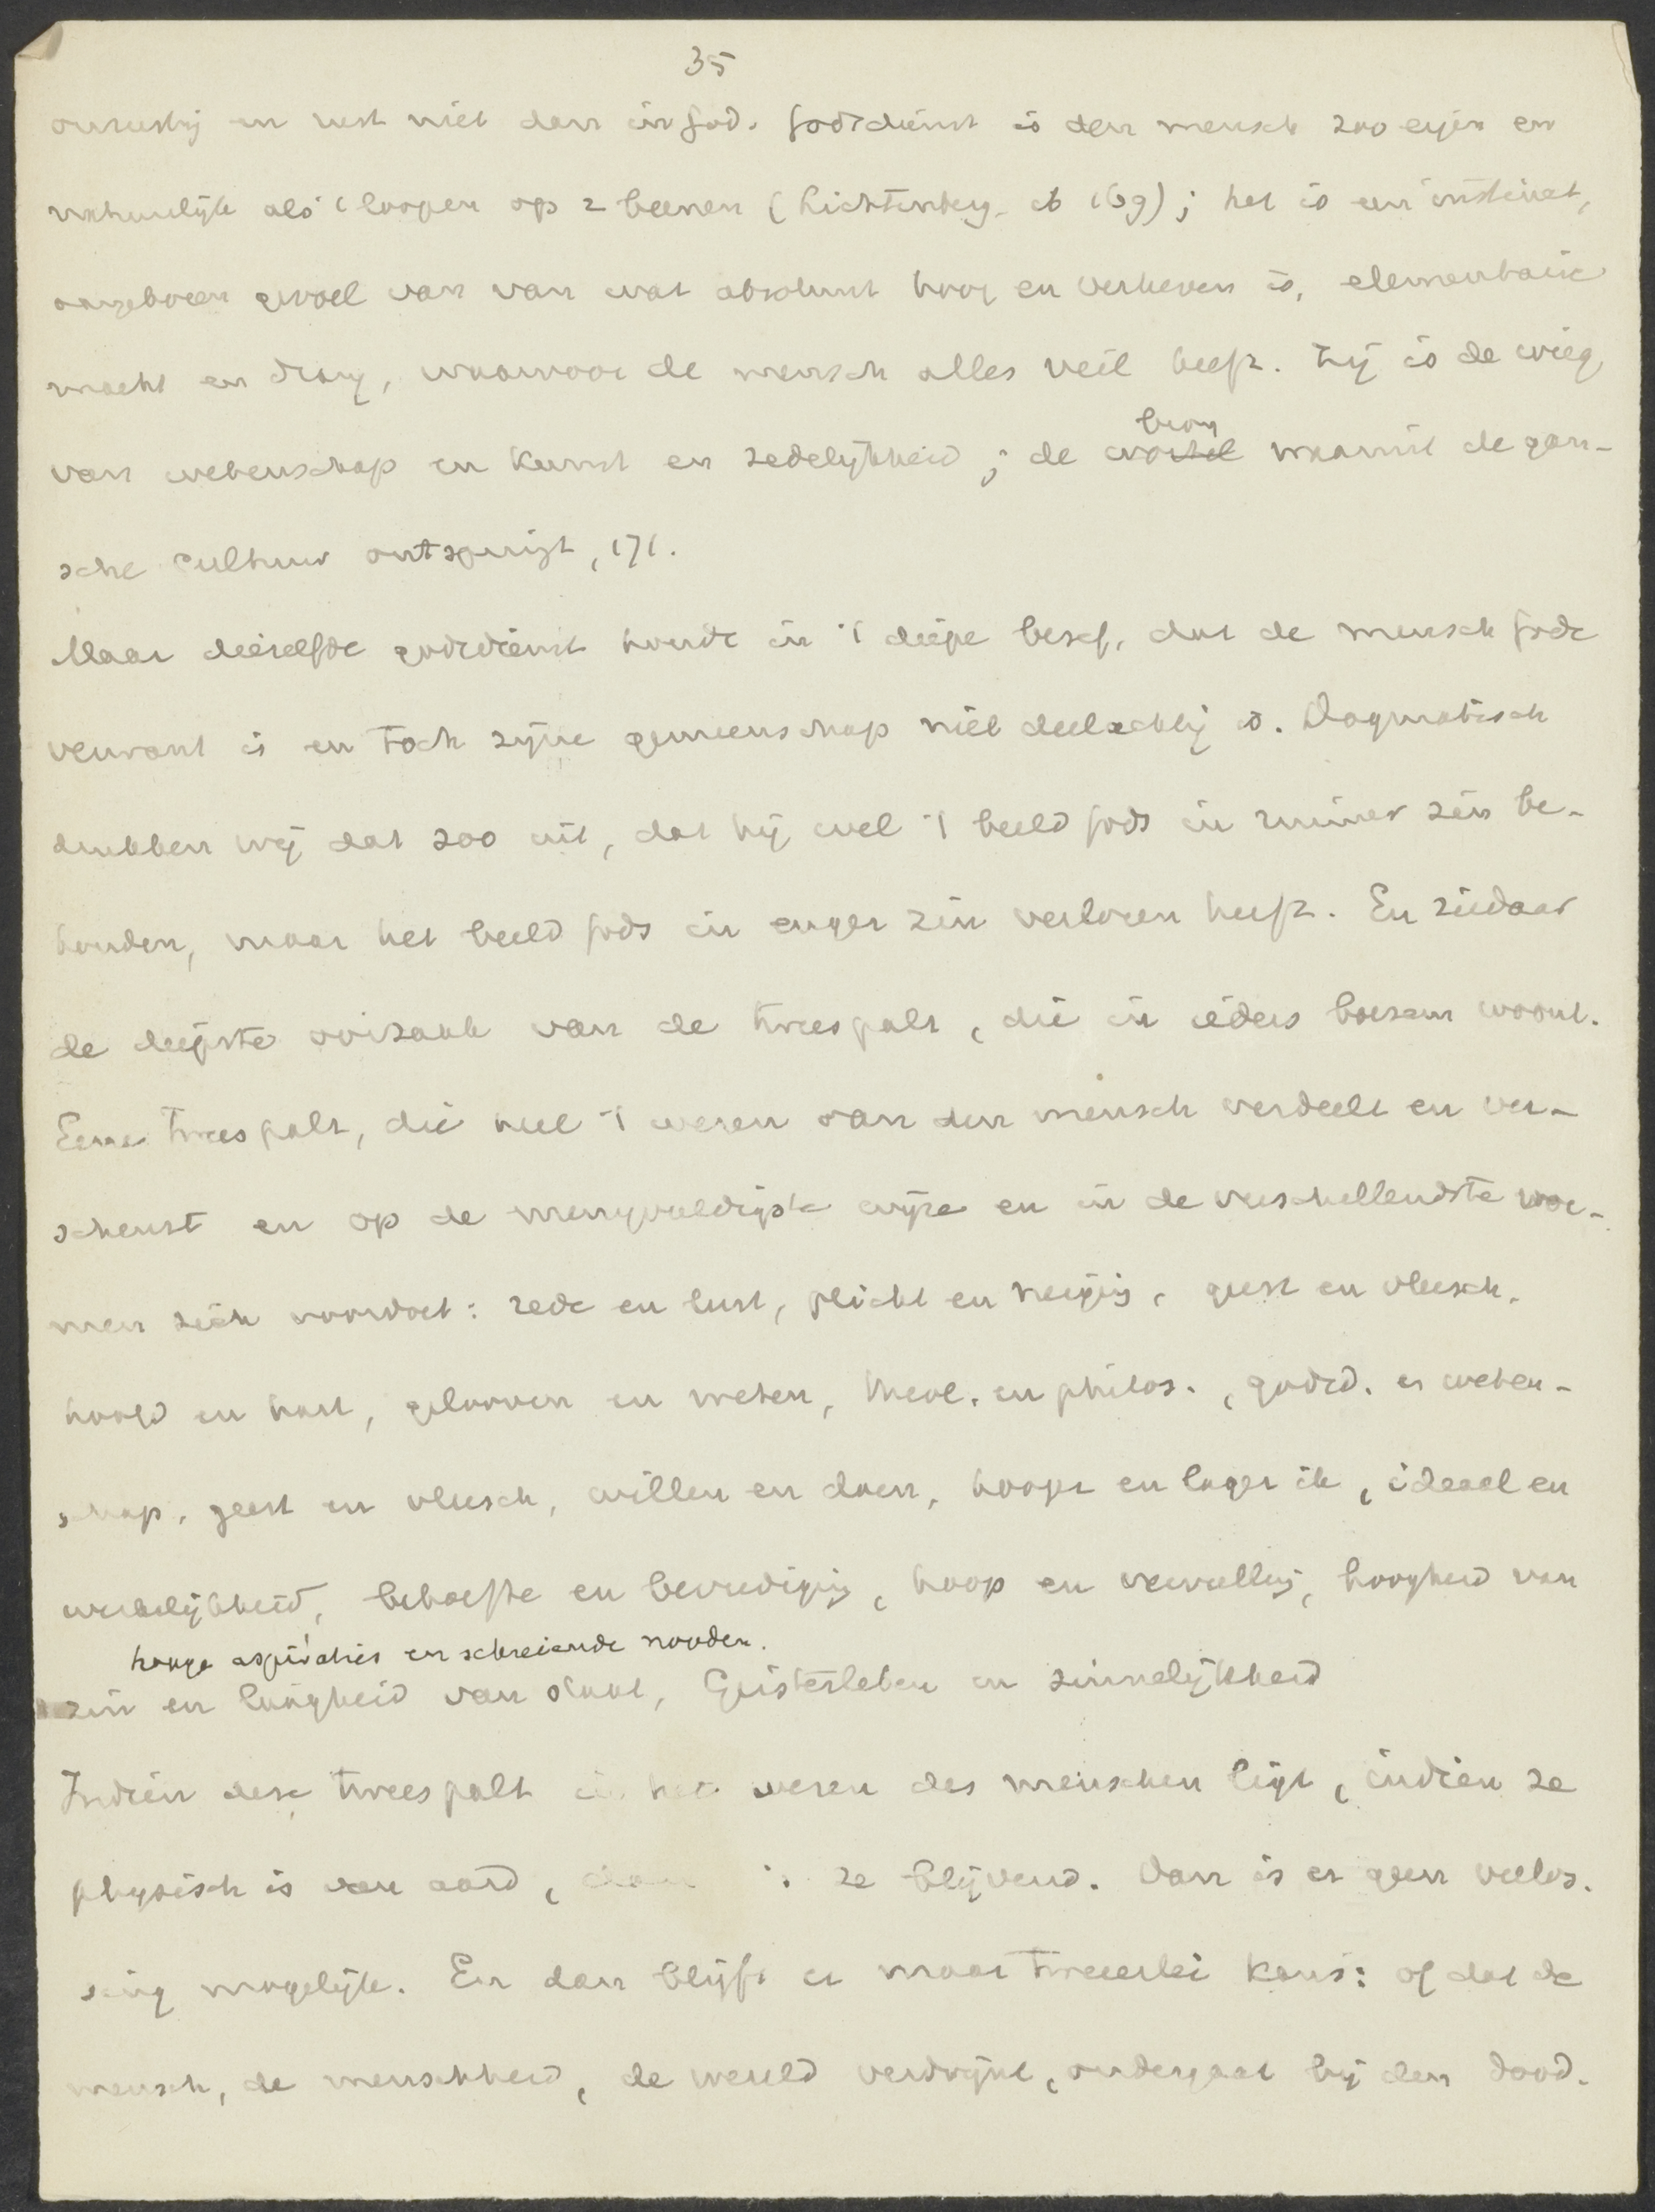 35
onrustig en rust niet dan in God. Godsdienst is den mensch zoo eigen en
natuurlijk als 't loopen op 2 beenen (Lichtenberg ib 169); het is een instinct,
aangeboren gevoel van van wat absoluut hoog en verheven is, elementaire
macht en drang, waarvoor de mensch alles veil heeft. Zij is de wieg
van wetenschap en kunst en zedelijkheid; de wortel bron waaruit de gan-
sche cultuur ontspringt, 171.
Maar diezelfde godsdienst houdt in 't diepe besef, dat de mensch Gode
verwant is en toch zijne gemeenschap niet deelachtig is. Dogmatisch
drukken wij dat zoo uit, dat hij wel 't beeld Gods in ruimer zin be-
houden, maar het beeld Gods in enger zin verloren heeft. En ziedaar
de diepste oorzaak van de tweespalt, die in ieders boezem woont.
Eene tweespalt, die heel 't wezen van den mensch verdeelt en ver-
scheurt en op de menigvuldigste wijze en in de verschillendste vor-
men zich voordoet: rede en lust, plicht en neiging, geest en vleesch,
hoofd en hart, gelooven en weten, theol. en philos., godsd. en weten-
schap, geest en vleesch, willen en doen, hooger en lager ik, ideaal en
werkelijkheid, behoefte en bevrediging, hoop en vervulling, hoogheid van
hooge aspiraties en schreiende nooden.
zin en laagheid van staat, Geistesleben en zinnelijkheid
Indien deze tweespalt in het wezen des menschen ligt, indien ze
physisch is van aard, dan is ze blijvend. Dan is er geen verlos-
sing mogelijk. En dan blijft er maar tweeërlei kans: of dat de
mensch, de menschheid, de wereld verdwijnt, ondergaat bij den dood.